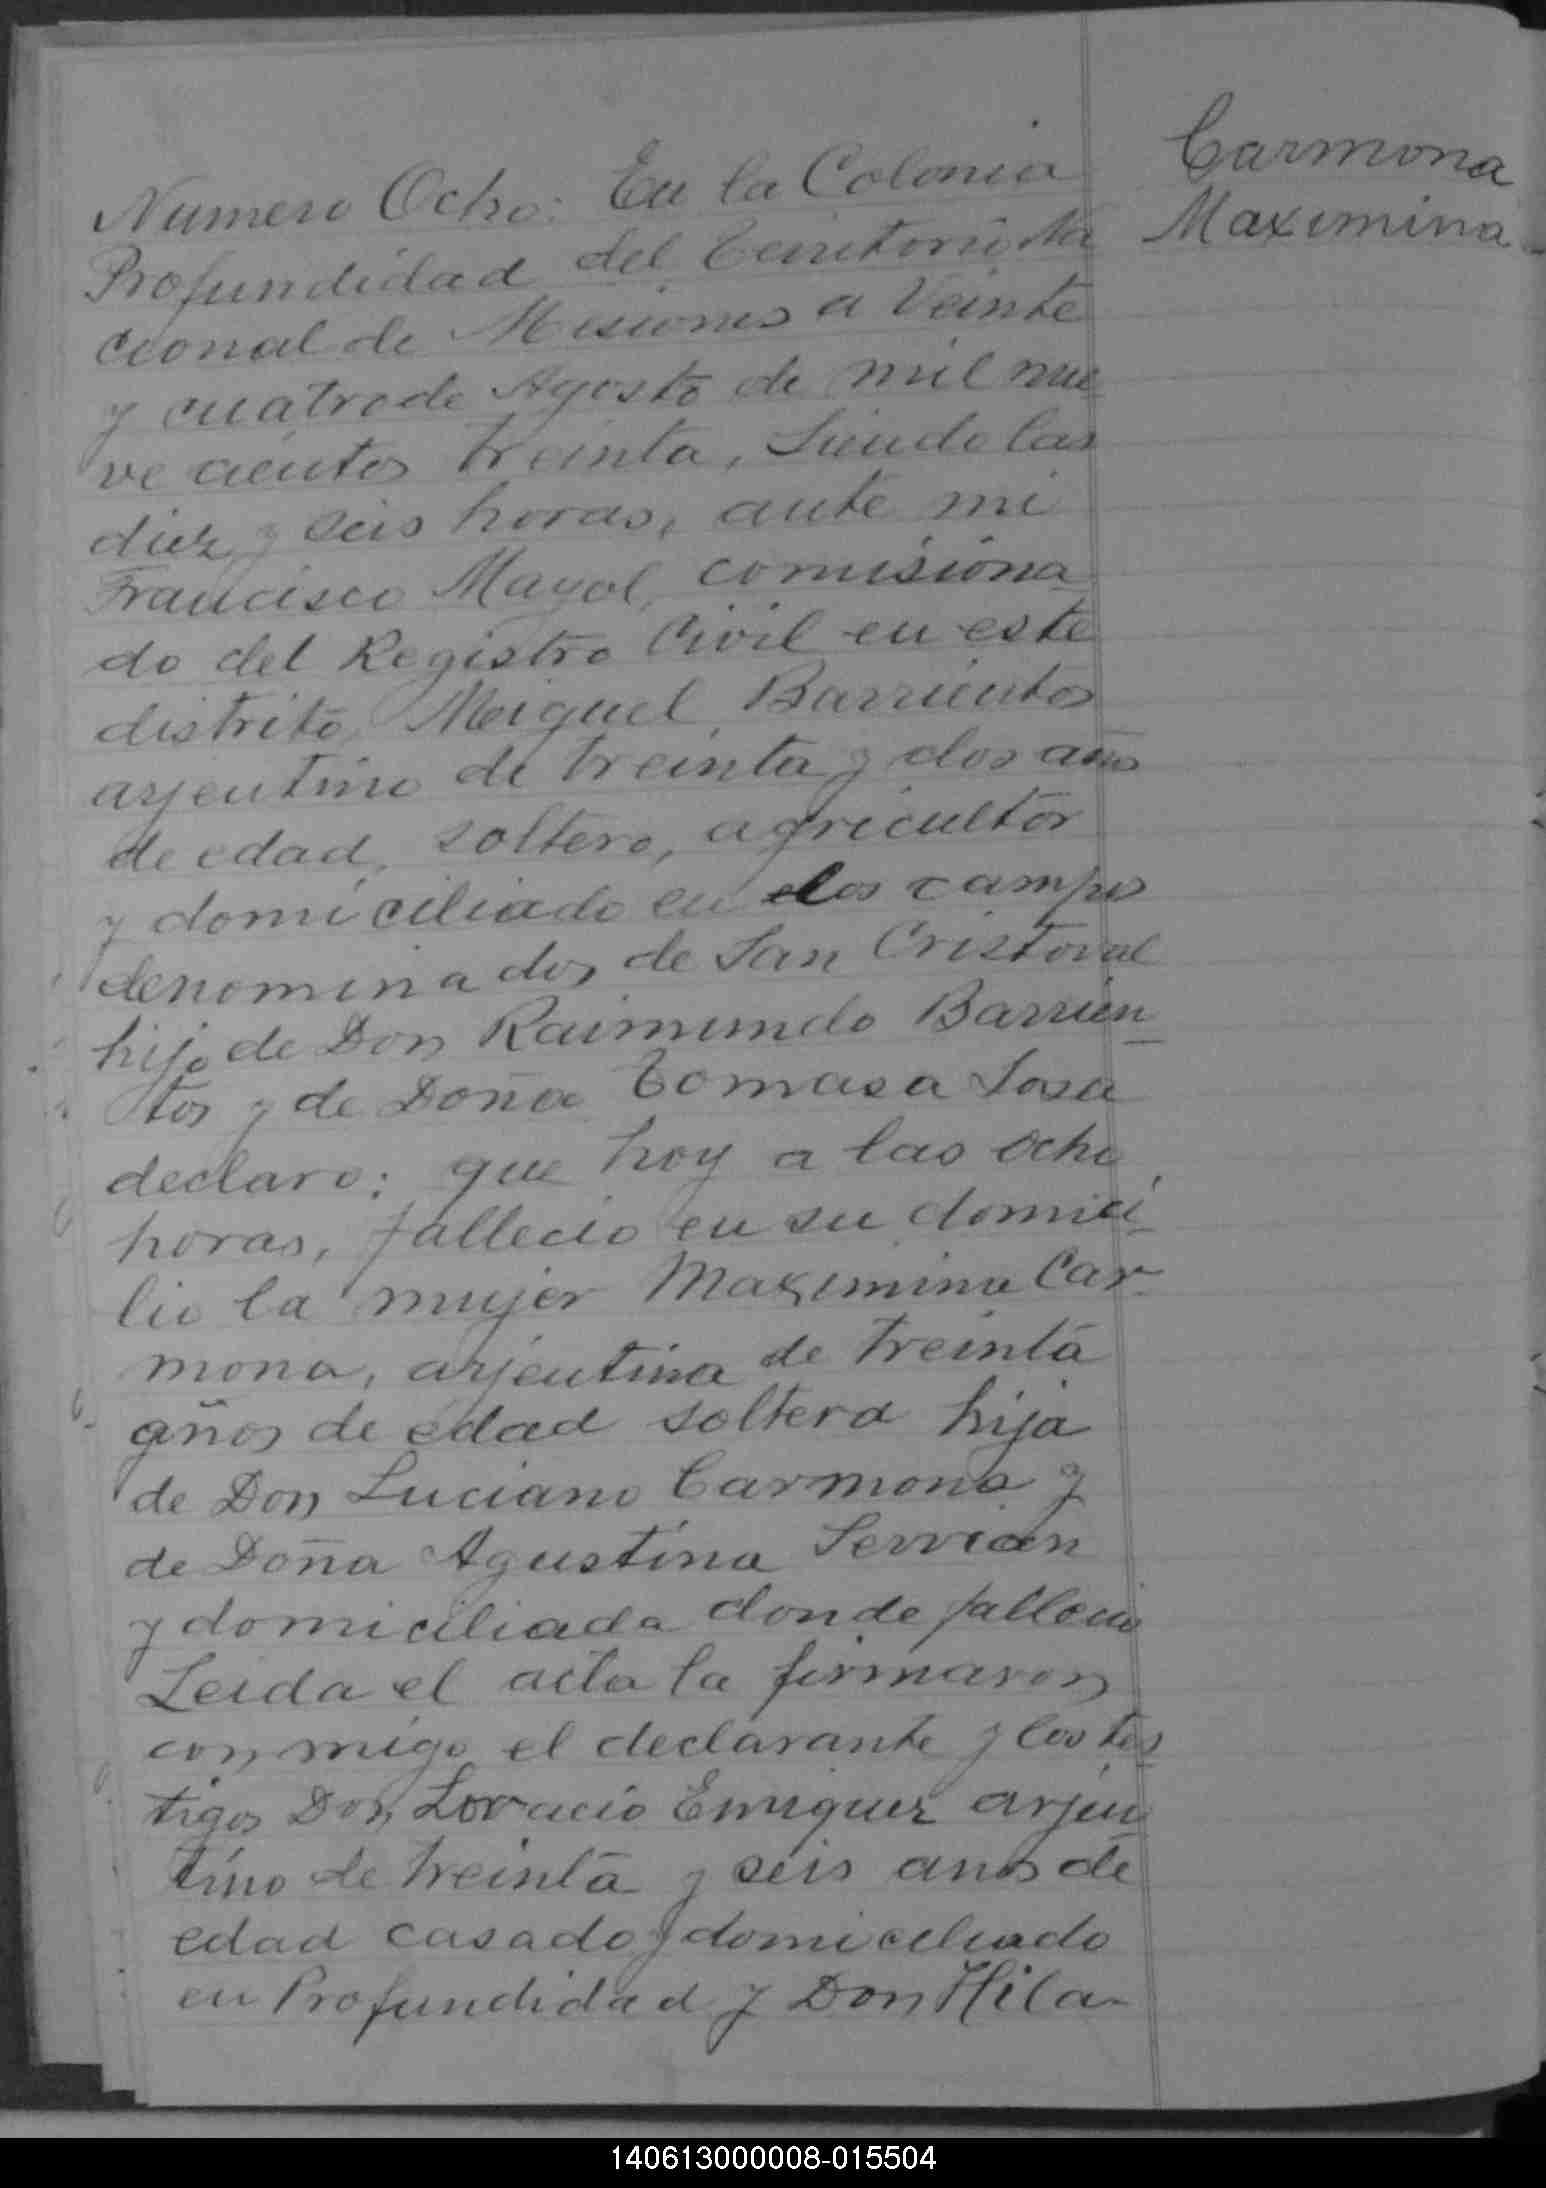 Carmona
Maximina
Numero Ocho: En la Colonia
Profundidad del Territorio Na
cional de Misiones a Veinte
y cuatro de Agosto de mil nue
ve cientos treinta, Siendo las
diez y seis horas, ante mi
Francisco Mayol, comisiona
do del Registro Civil en este
distrito, Miguel Barrientos
arjentino de treinta y dos años
de edad, soltero, agricultor
y domiciliado en los campos
denominados de San Cristoval
hijo de Don Raimundo Barrien
tos y de Doña Tomasa Sosa
declaro: que hoy a las ocho
horas, fallecio en su domici
lio la mujer Maximina Car
mona, arjentina de treinta
años de edad soltera hija
de Don Luciano Carmona y
de Doña Agustina Servian
y domiciliada donde fallecio
Leida el acta la firmaron
conmigo el declarante y los tes
tigos Don Loracio Enriquez arjen
tino de treinta y seis anos de
edad casado y domiciliado
en Profundidad y Don Hila-
140613000008-015504